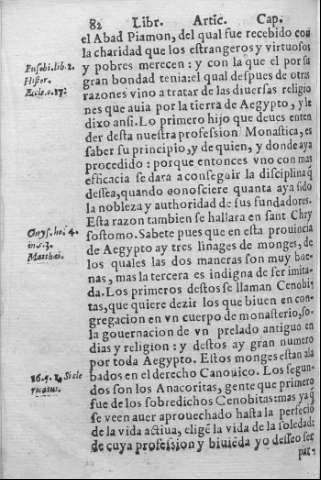 82 Libr. Artic. Cap.
el Abad Piamon, del qual fue recebido con
la charidad que los estrangeros y virtuosos
Eusebi. lib. 2.
Histor.
Eccle. c. 17:
y pobres merecen: y con la que el por su
gran bondad tenia: el qual despues de otras
razones vino a tratar de las diuersas religio
nes que auia por la tierra de Aegypto, y le
dixo ansi. Lo primero hijo que deues enten
der desta nuestra profession Monastica, es
saber su principio, y de quien, y donde aya
procedido: porque entonces vno con mas
efficacia se dara a conseguir la disciplina q̃
dessea, quando conosciere quanta aya sido
la nobleza y authoridad de sus fundadores.
Esta razon tambien se hallara en sant Chry
Chrys. ho. 4.
in c. 2.
Matthæi.
sostomo. Sabete pues que en esta prouincia
de Aegypto ay tres linages de monges, de
los quales las dos maneras son muy bue-
nas, mas la tercera es indigna de ser imita-
da. Los primeros destos se llaman Cenobi
tas, que quiere dezir los que biuen en con-
gregacion en vn cuerpo de monasterio, so-
la gouernacion de vn prelado antiguo en
dias y religion: y destos ay gran numero
por toda Aegypto. Estos monges estan ala
16. q. 1. Si cle
ricatus.
bados en el derecho Canonico. Los segun-
dos son los Anacoritas, gente que primero
fue de los sobredichos Cenobitas: mas ya q̃
se veen auer aprouechado hasta la perfeció
de la vida actiua, eligẽ la vida de la soledad:
de cuya profession y biuiẽda yo desseo ser
par-